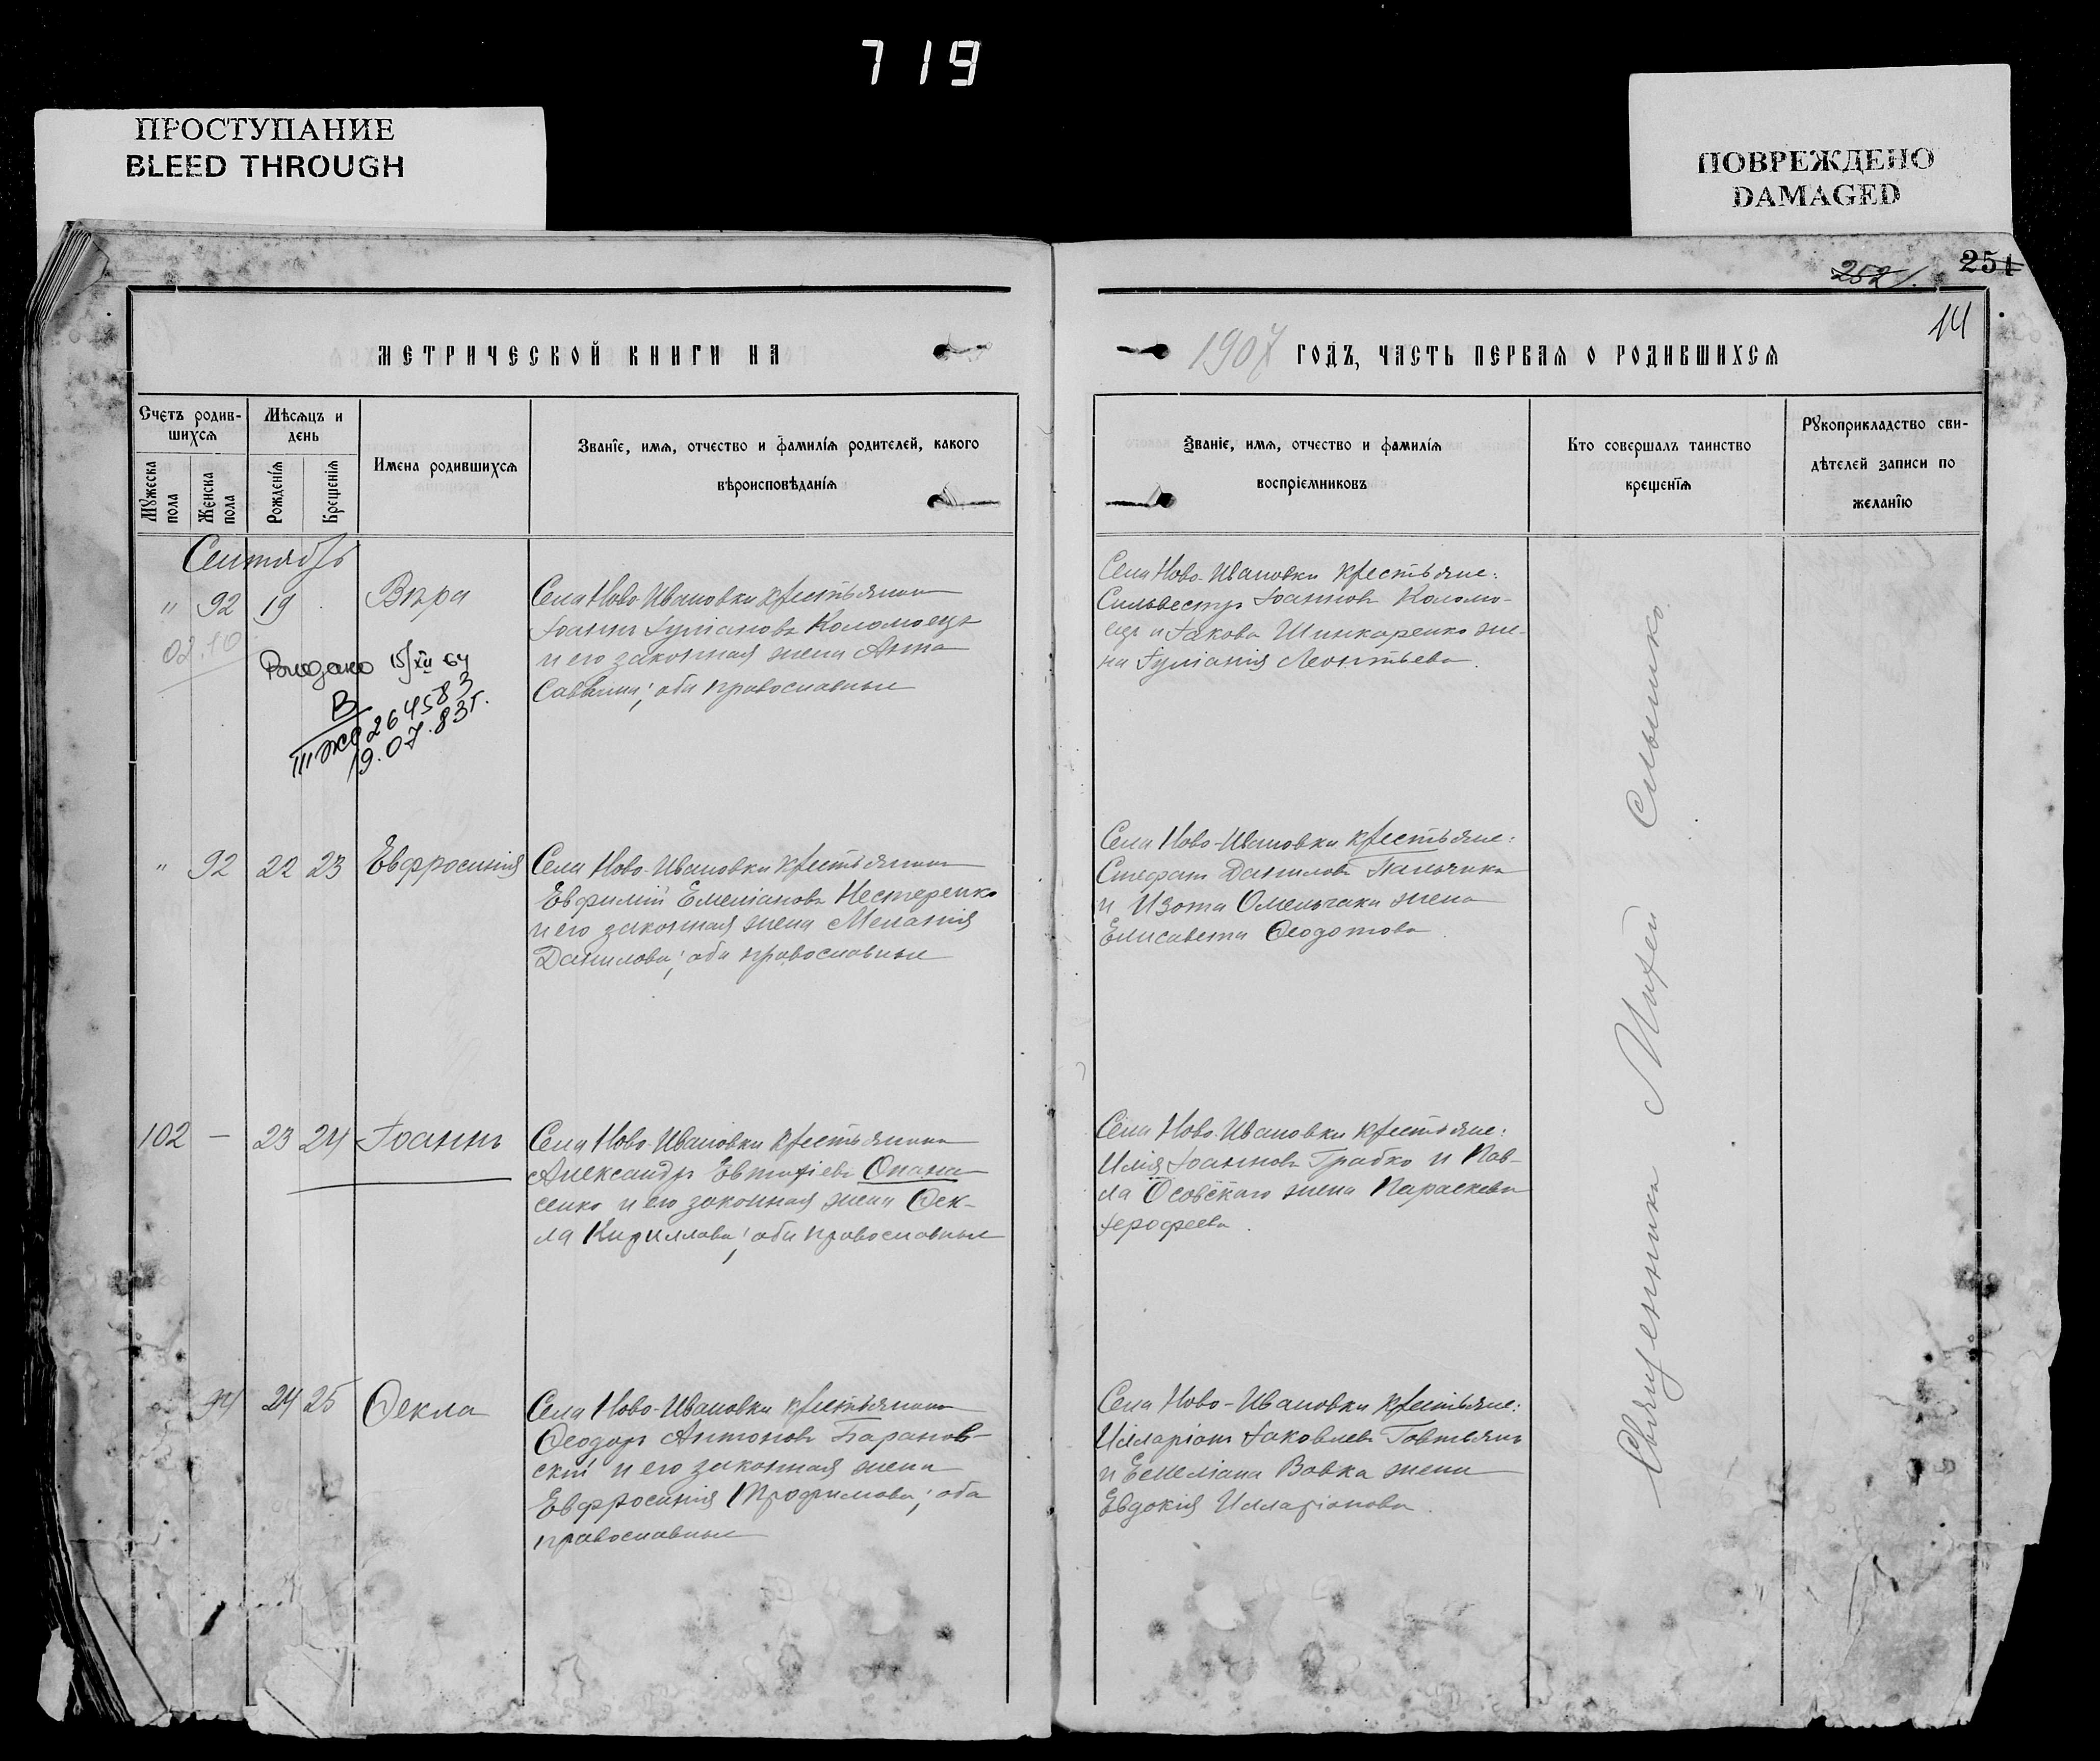 719
ПРОСТУПАНИЕ
BLEED THROUGH
ПОВРЕЖДЕНО
DAMAGED
252
251
14
МЕТРИЧЕСКОЙ КНИГИ НА
1907 ГОДЪ, ЧАСТЬ ПЕРВАЯ О РОДИВШИХСЯ
Счетъ родив-
шихся
Мужеска пола
Женска пола
Мѣсяцъ и
день
Рожденія
Крещенія
Имена родившихся
Званіе, имя, отчество и фамилія родителей, какого
вѣроисповѣданія
Званіе, имя, отчество и фамилія
воспріемниковъ
Кто совершалъ таинство
крещенія
Рукоприкладство сви-
дѣтелей записи по
желанію
Сентябрь
" 92 19
Вѣра
Села Ново-Ивановки крестьянинъ
Іоаннъ Іуліановъ Коломоецъ
и его законная жена Анна
Саввина; оба православные
Села Ново-Ивановки крестьяне:
Сильвестръ Іоанновъ Коломо-
ецъ и Іакова Шинкаренко же-
на Іуліанія Леонтьева.
02.10
15/XII 64
В
III ЖС 264583
19.07.83г.
" 92 22 23 Евфросинія
Села Ново-Ивановки крестьянинъ
Евфимій Емеліановъ Нестеренко
и его законная жена Меланія
Данилова; оба православные
Села Ново-Ивановки крестьяне:
Стефанъ Даниловъ Пальчикъ
и Изота Омельчака жена
Елисавета Ѳеодотова.
102 — 23 24 Іоаннъ
Села Ново-Ивановки крестьянинъ
Александръ Евтихіевъ Опана-
сенко и его законная жена Ѳек-
ла Кириллова; оба православные
Села Ново-Ивановки крестьяне:
Илія Іоанновъ Грабко и Пав-
ла Осовскаго жена Параскева
Іерофеева.
94 24 25 Ѳекла
Села Ново-Ивановки крестьянинъ
Ѳеодоръ Антоновъ Баранов-
скій и его законная жена
Евфросинія Трофимова; оба
православные
Села Ново-Ивановки крестьяне:
Илларіонъ Іаковлевъ Говтьянъ
и Емеліана Вовка жена
Евдокія Илларіонова.
Священникъ Михей